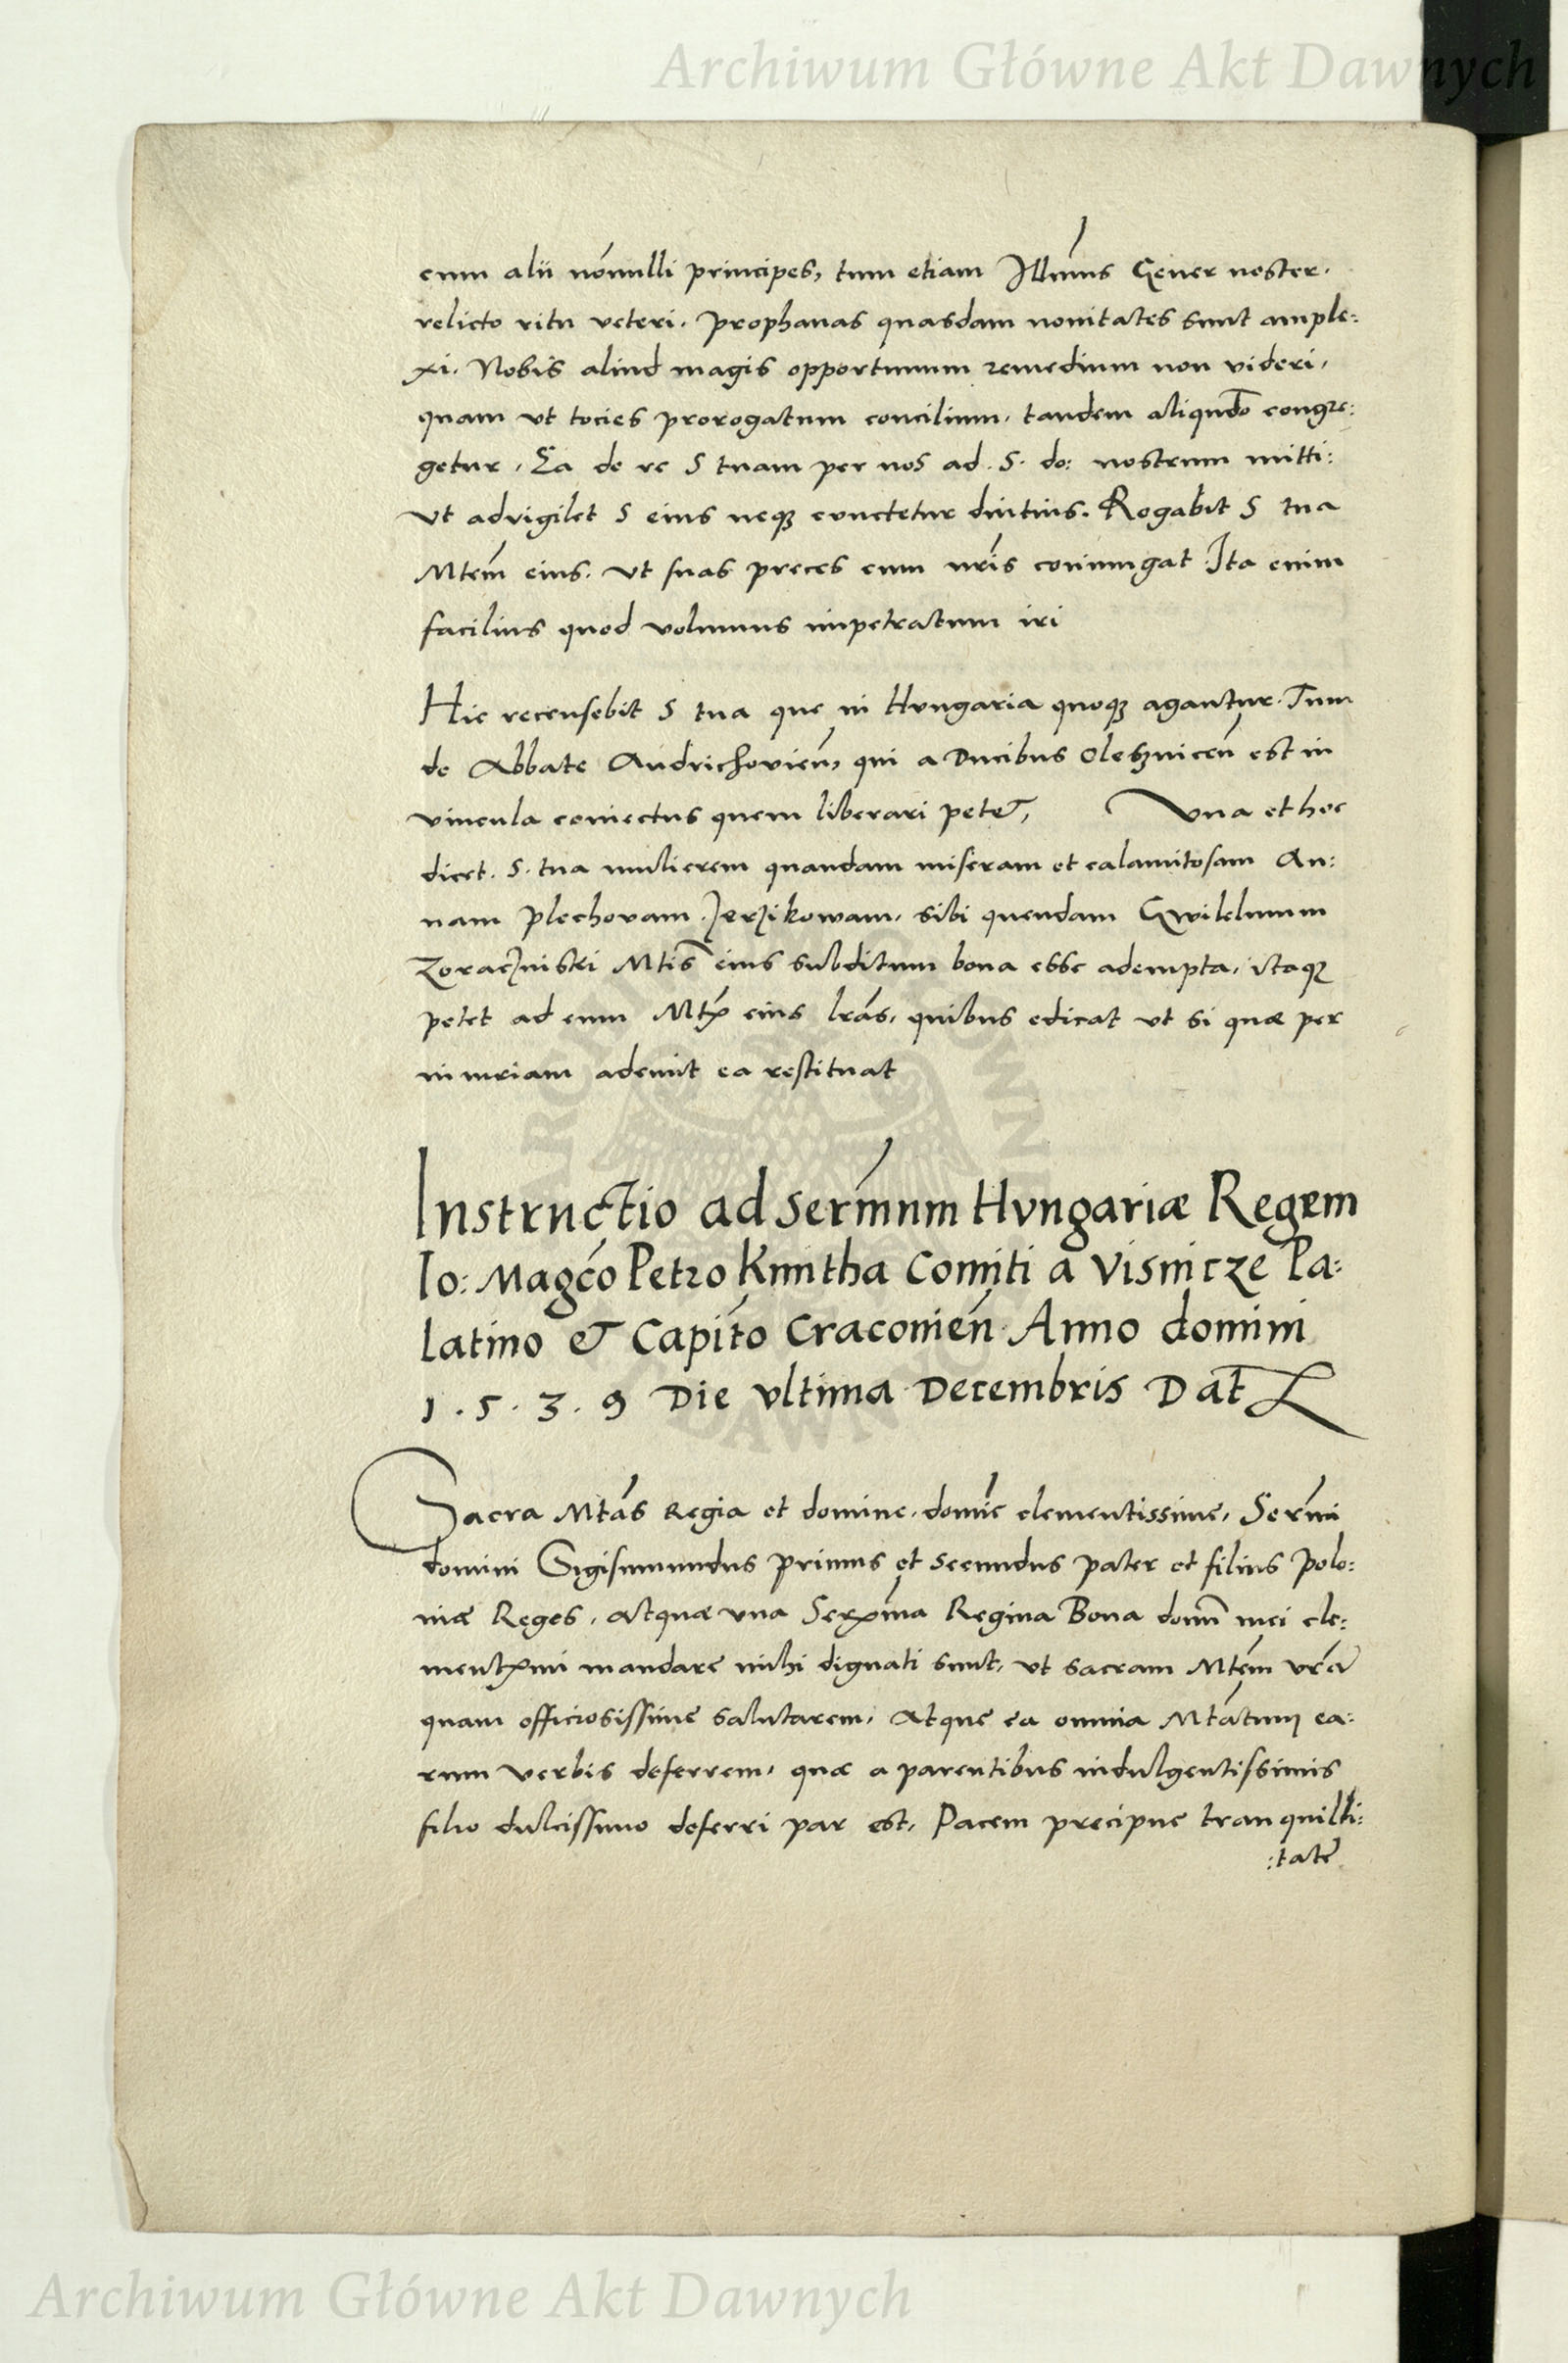 Archiwum Główne Akt Dawnych
cum alii nõnulli principes, tum etiam Illm̃us Gener noster.
relicto ritu veteri. prophanas quasdam nouitates sunt ample:
xi. Nobis aliud magis opportunum remedium non videri,
quam vt tocies prorogatum concilium. tandem aliqun̄do congre:
getur. Ea de re S tuam per nos ad. S. do: nostrum mitti:
vt advigilet S eius neqꝫ cunctetur diutius. Rogabit S tua
Mtem̃ eius. vt suas preces cum nr̃is coniungat Ita enim
facilius quod volumus impetratum iri
Hic recensebit S tua que in Hungaria quoqꝫ agantur. Tum
de Abbate Andrichovień, qui a Ducibus Oleszniceń est in
vincula coniectus quem liberari petet, Vna et hoc
dicet. S. tua mulierem quandam miseram et calamitosam An:
nam Plechovam Jerzikowam, sibi quendam Gwilelmum
Zoraczniski Mtis̃ eius subditum bona esse adempta, itaqꝫ
petet ad eum Mtꝭ eius lrãs, quibus edicat vt si quæ per
iniuriam ademit ea restituat
Instructio ad Serm̃um Hvngariæ Regem
Io: Magc̃o Petro Kmitha Comiti a Visnicze Pa:
latino & Capit̃o Cracomień Anno domini
1.5.3.9 Die vltima Decembris Dat̃
Sacra Mtãs Regia et domine. domĩe clementissime, Serm̃i
domini Sigismundus primus et secundus pater et filius Polo:
niæ Reges, atquæ vna Serꝭm̃a Regina Bona domñ mei cle:
mentꝭmi mandare mihi dignati sunt, vt sacram Mtem̃ vrã
quam officiosissime salutarem, Atque ea omnia Mtãtum ea:
rum verbis deferrem, quæ a parentibus indulgentissimis
filio dulcissimo deferri par est, Pacem precipue tranquilli:
:tatẽ
Archiwum Główne Akt Dawnych